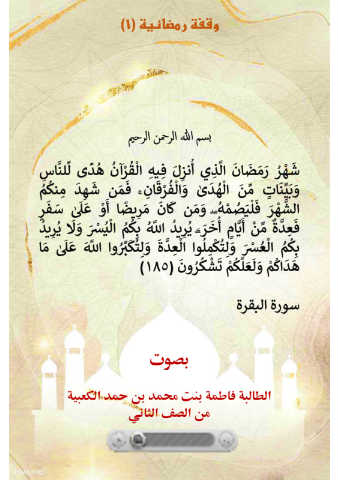 وقفة رمضانية (١)
بسم الله الرحمن الرحيم
شَهْرُ رَمَضَانَ الَّذِي أُنزِلَ فِيهِ الْقُرْآنُ هُدًى لِّلنَّاسِ
وَبَيِّنَاتٍ مِّنَ الْهُدَىٰ وَالْفُرْقَانِ ۚ فَمَن شَهِدَ مِنكُمُ
الشَّهْرَ فَلْيَصُمْهُ ۖ وَمَن كَانَ مَرِيضًا أَوْ عَلَىٰ سَفَرٍ
فَعِدَّةٌ مِّنْ أَيَّامٍ أُخَرَ ۗ يُرِيدُ اللَّهُ بِكُمُ الْيُسْرَ وَلَا يُرِيدُ
بِكُمُ الْعُسْرَ وَلِتُكْمِلُوا الْعِدَّةَ وَلِتُكَبِّرُوا اللَّهَ عَلَىٰ مَا
هَدَاكُمْ وَلَعَلَّكُمْ تَشْكُرُونَ (١٨٥)
سورة البقرة
بصوت
الطالبة فاطمة بنت محمد بن حمد الكعبية
من الصف الثاني